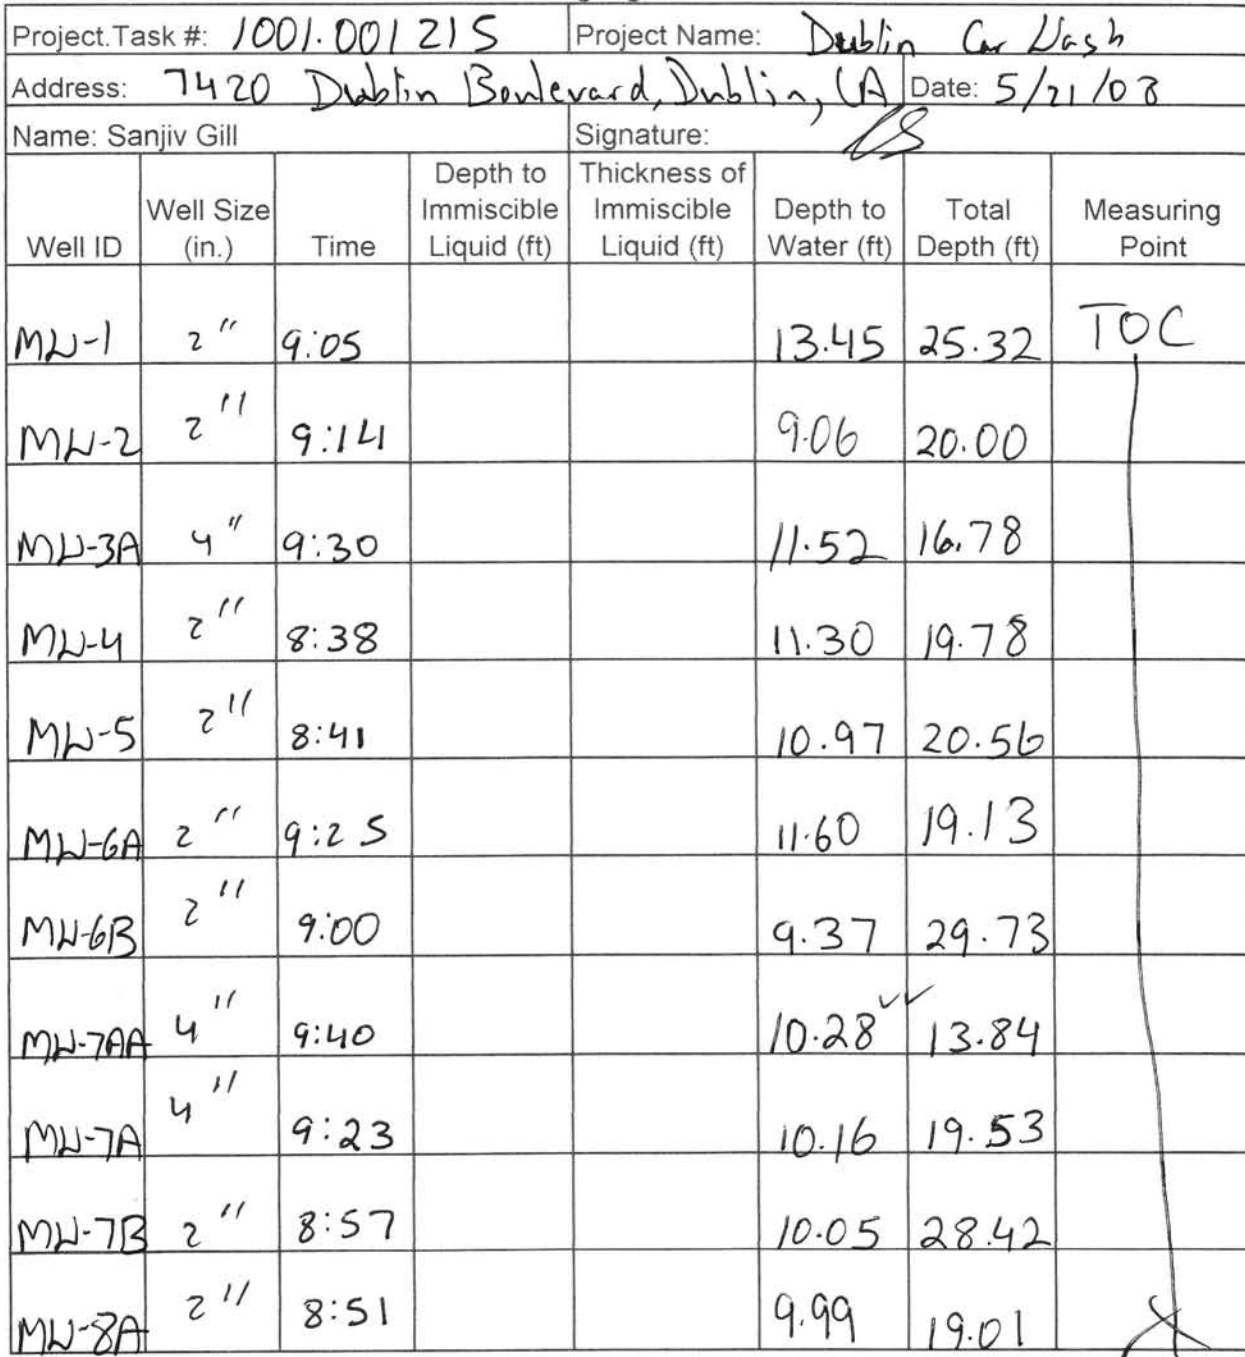 Project.Task #: 1001.001215 Project Name: Dublin Car Wash
Address: 7420 Dublin Boulevard, Dublin, CA Date: 5/21/08
Name: Sanjiv Gill Signature:
Well ID Well Size (in.) Time Depth to Immiscible Liquid (ft) Thickness of Immiscible Liquid (ft) Depth to Water (ft) Total Depth (ft) Measuring Point
MW-1 2" 9:05 13.45 25.32 TOC
MW-2 2" 9:14 9.06 20.00
MW-3A 4" 9:30 11.52 16.78
MW-4 2" 8:38 11.30 19.78
MW-5 2" 8:41 10.97 20.56
MW-6A 2" 9:25 11.60 19.13
MW-6B 2" 9:00 9.37 29.73
MW-7AA 4" 9:40 10.28 13.84
MW-7A 4" 9:23 10.16 19.53
MW-7B 2" 8:57 10.05 28.42
MW-8A 2" 8:51 9.99 19.01